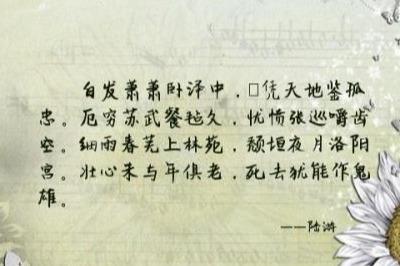 白发萧萧卧泽中，□凭天地鉴孤
忠。厄穷苏武餐毡久，忧愤张巡嚼齿
空。细雨春芜上林苑，颓垣夜月洛阳
宫。壮心未与年俱老，死去犹能作鬼
雄。
——陆游